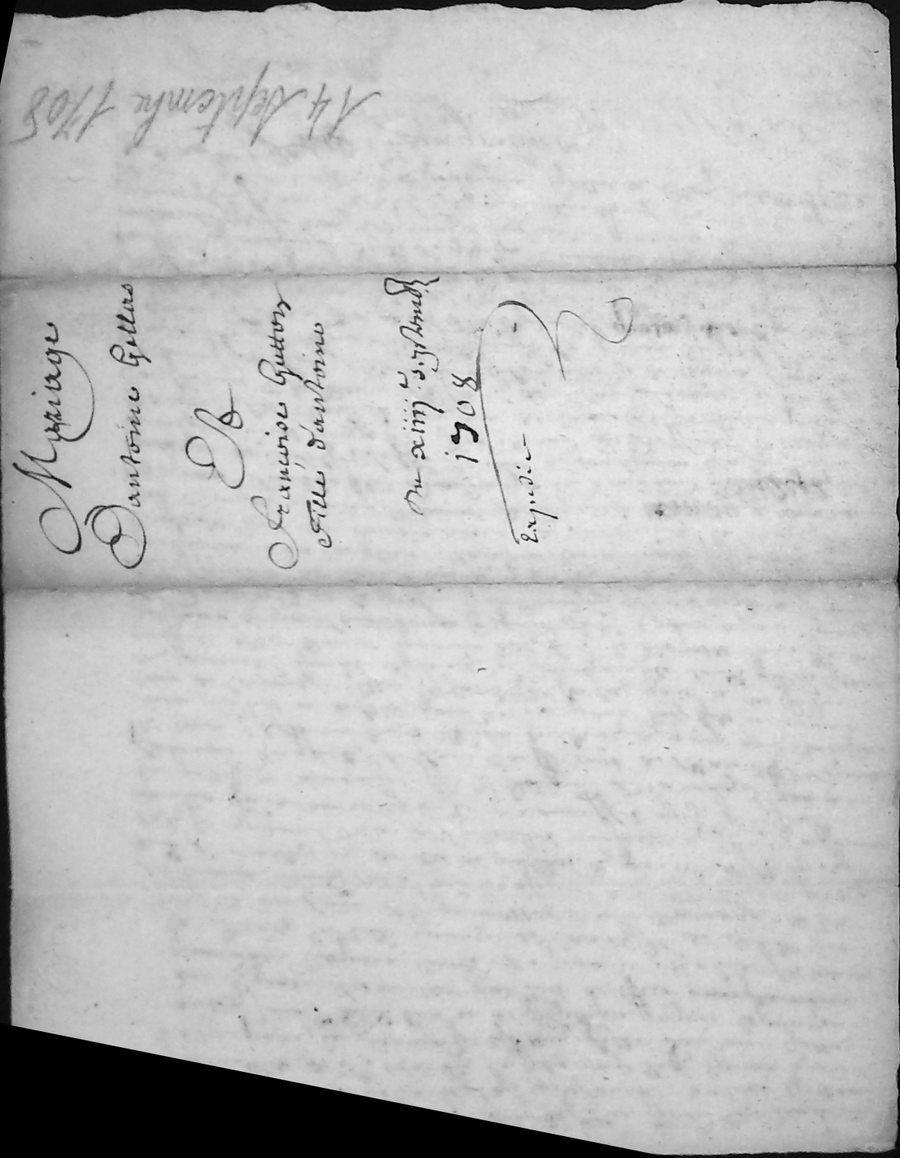 14 Septembre 1708
Mariage
Dantoine Gellas
Et
Françoise Gutton
Fille dantoine
Du xiiije
1708
Expedie